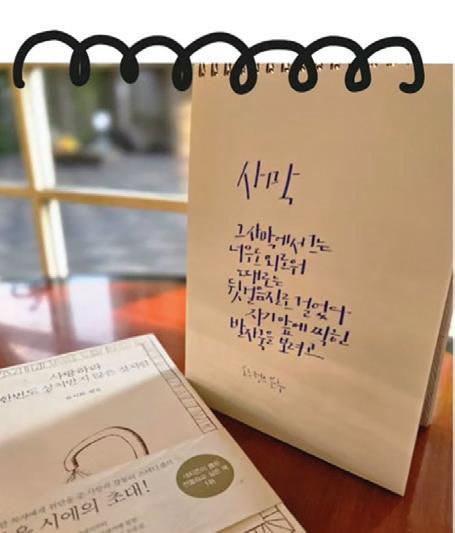 사막
그 사막에서 그는
너무도 외로워
때로는
뒷걸음질로 걸었다
자기 앞에 찍힌
발자국을 보려고
사랑하라
한번도 상처받지 않은 것처럼
시에의 초대!
네티즌이 뽑은
선물하고 싶은 책
1위